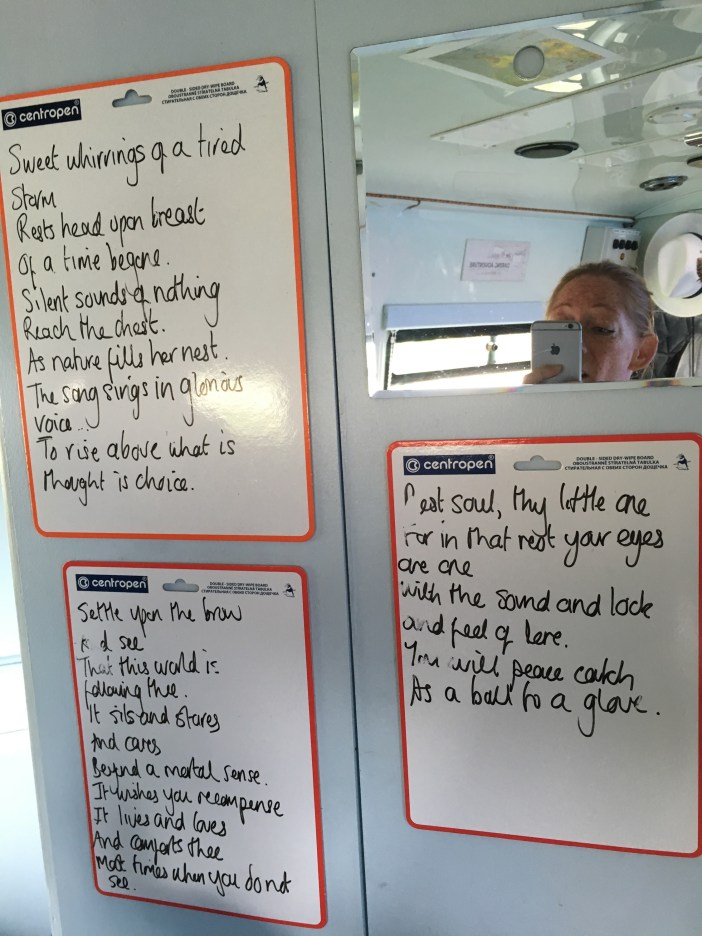 centropen
DOUBLE - SIDED DRY-WIPE BOARD
OBOUSTRANNĚ STÍRATELNÁ TABULKA
СТИРАТЕЛЬНАЯ С ОБЕИХ СТОРОН ДОЩЕЧКА
Sweet whirrings of a tired
Storm
Rests head upon breast
Of a time begone.
Silent sounds of nothing
Reach the chest.
As nature fills her nest.
The song sings in glorious
voice...
To rise above what is
thought is choice.
centropen
DOUBLE - SIDED DRY-WIPE BOARD
OBOUSTRANNĚ STÍRATELNÁ TABULKA
СТИРАТЕЛЬНАЯ С ОБЕИХ СТОРОН ДОЩЕЧКА
Settle upon the brow
see
That this world is
following thee.
It sits and stares
And cares
Beyond a mortal sense.
It wishes you recompense
It lives and loves
And comforts thee
Most times when you do not
see.
centropen
DOUBLE - SIDED DRY-WIPE BOARD
OBOUSTRANNĚ STÍRATELNÁ TABULKA
СТИРАТЕЛЬНАЯ С ОБЕИХ СТОРОН ДОЩЕЧКА
Rest soul, thy little one
For in that rest your eyes
are one
with the sound and look
and feel of here.
You will peace catch
As a ball to a glove.